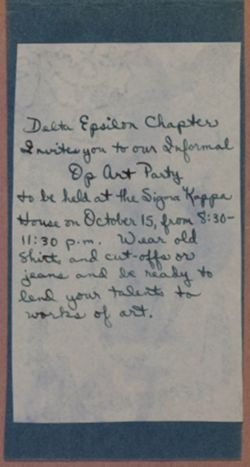 Delta Epsilon Chapter
Invites you to our Informal
Op Art Party
to be held at the Sigma Kappa
House on October 15, from 8:30-
11:30 p.m. Wear old
shirts and cut-offs or
jeans and be ready to
lend your talents to
works of art.